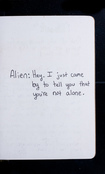 Alien: Hey, I just came
by to tell you that
you're not alone.